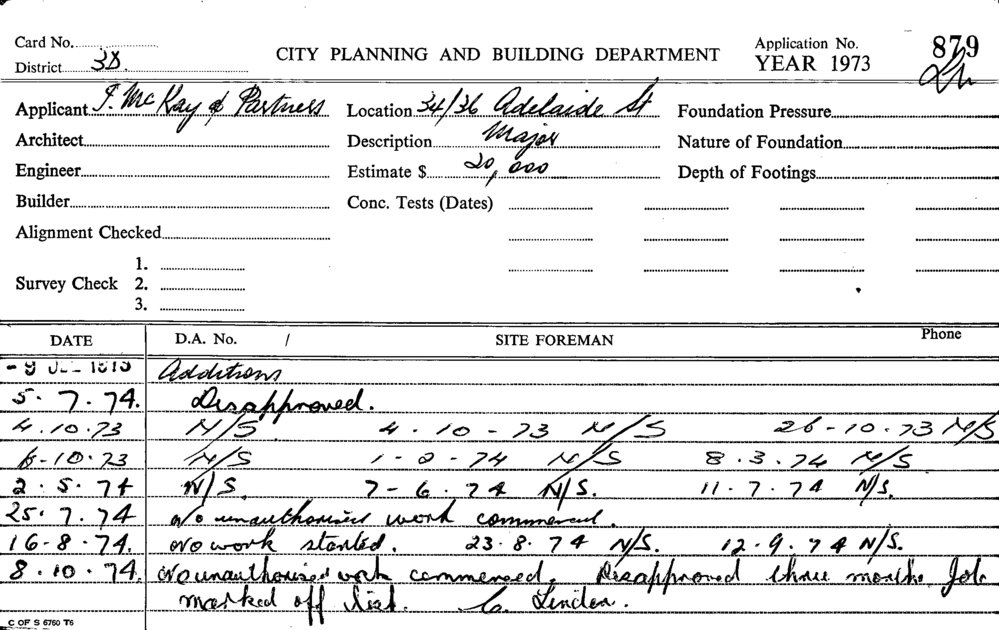 Card No.
District 3B
CITY PLANNING AND BUILDING DEPARTMENT
Application No. 879
YEAR 1973
Applicant J. McKay & Partners
Location 34/36 Adelaide St
Foundation Pressure
Architect
Description Major
Nature of Foundation
Engineer
Estimate $ 20,000
Depth of Footings
Builder
Conc. Tests (Dates)
Alignment Checked
Survey Check
1.
2.
3.
DATE D.A. No. / SITE FOREMAN Phone
Additions
5.7.74. Disapproved.
4.10.73 N/S 4-10-73 N/S 26-10.73 N/S
6-10.73 N/S 1-2-74 N/S 8.3.74 N/S
2.5.74 N/S. 7-6.74 N/S. 11.7.74 N/S.
25.7.74 No unauthorised work commenced.
16-8.74. No work started. 23.8.74 N/S. 12.9.74 N/S.
8.10.74. No unauthorised work commenced. Disapproved three months Job
marked off list. C. Linden.
C OF S 6760 T6